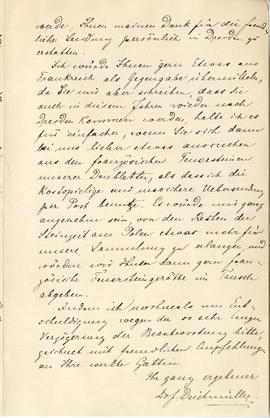 werde, Ihnen meinen Dank für die freund-
liche Sendung persönlich in Dresden zu
erstatten.
Ich würde Ihnen gern Etwas aus
Frankreich als Gegengabe übermitteln,
da Sie mir aber schreiben, dass Sie
auch in diesem Jahre wieder nach
Dresden kommen werden, halte ich es
für einfacher, wenn Sie sich dann
bei uns lieber etwas aussuchen
aus den französischen Feuersteinen
unserer Doubletten, als dass ich die
kostspielige und unsichere Uebersendung
per Post benutze. Es würde mir ganz
angenehm sein, von den Resten der
Steinzeit aus Polen etwas mehr für
unsere Sammlung zu erlangen und
würden wir Ihnen dann gern fran-
zösische Feuersteingeräthe im Tausch
abgeben.
Indem ich nochmals um Ent-
schuldigung wegen der so sehr langen
Verzögerung der Beantwortung bitte,
zeichnet mit freundlichen Empfehlungen
an Ihre werthe Gattin
Ihr ganz ergebener
Deichmüller